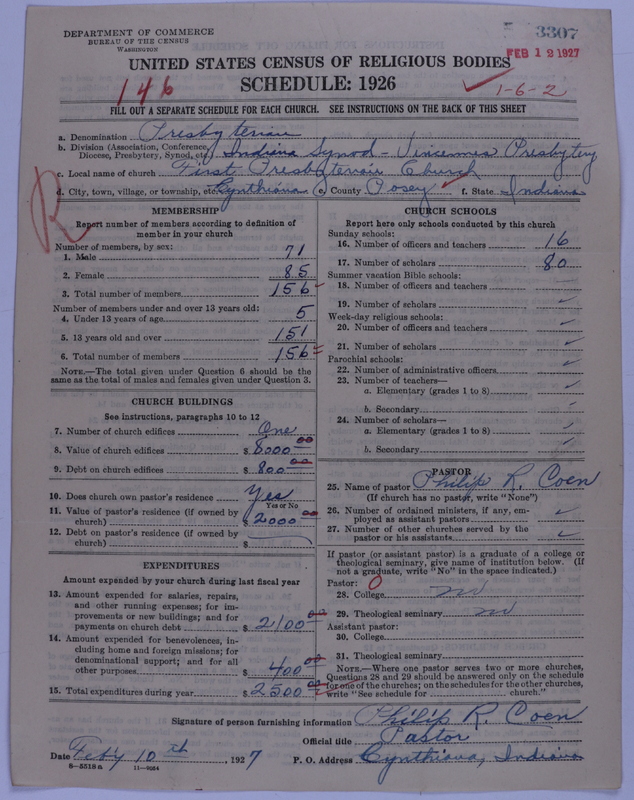 DEPARTMENT OF COMMERCE
BUREAU OF THE CENSUS
WASHINGTON
3307
FEB 12 1927
UNITED STATES CENSUS OF RELIGIOUS BODIES
SCHEDULE: 1926
146
1-6-2
FILL OUT A SEPARATE SCHEDULE FOR EACH CHURCH. SEE INSTRUCTIONS ON THE BACK OF THIS SHEET
a. Denomination Presbyterian
b. Division (Association, Conference, Diocese, Presbytery, Synod, etc.) Indiana Synod - Vincennes Presbytery
c. Local name of church First Presbyterian Church
d. City, town, village, or township, etc. Cynthiana (e) County Posey f. State Indiana
R
MEMBERSHIP
Report number of members according to definition of
member in your church
Number of members, by sex:
1. Male 71
2. Female 85
3. Total number of members 156
Number of members under and over 13 years old:
4. Under 13 years of age 5
5. 13 years old and over 151
6. Total number of members 156
NOTE.—The total given under Question 6 should be
same as the total of males and females given under Question 3.
CHURCH BUILDINGS
See instructions, paragraphs 10 to 12
7. Number of church edifices One
8. Value of church edifices $ 8000 00
9. Debt on church edifices $ 800 00
10. Does church own pastor's residence Yes
Yes or No
11. Value of pastor's residence (if owned by
church) $ 2000 00
12. Debt on pastor's residence (if owned by
church) $
EXPENDITURES
Amount expended by your church during last fiscal year
13. Amount expended for salaries, repairs,
and other running expenses; for im-
provements or new buildings; and for
payments on church debt $ 2100 00
14. Amount expended for benevolences, in-
cluding home and foreign missions; for
denominational support; and for all
other purposes $ 400 00
15. Total expenditures during year $ 2500 00
CHURCH SCHOOLS
Report here only schools conducted by this church
Sunday schools:
16. Number of officers and teachers 16
17. Number of scholars 80
Summer vacation Bible schools:
18. Number of officers and teachers
19. Number of scholars
Week-day religious schools:
20. Number of officers and teachers
21. Number of scholars
Parochial schools:
22. Number of administrative officers
23. Number of teachers—
a. Elementary (grades 1 to 8)
b. Secondary
24. Number of scholars—
a. Elementary (grades 1 to 8)
b. Secondary
PASTOR
25. Name of pastor Philip R. Coen
(If church has no pastor, write "None")
26. Number of ordained ministers, if any, em-
ployed as assistant pastors
27. Number of other churches served by the
pastor or his assistants
If pastor (or assistant pastor) is a graduate of a college or
theological seminary, give name of institution below. (If
not a graduate, write "No" in the space indicated.)
Pastor: 0
28. College no
29. Theological seminary no
Assistant pastor:
30. College
31. Theological seminary
NOTE.—Where one pastor serves two or more churches,
Questions 28 and 29 should be answered only on the schedule
for one of the churches; on the schedules for the other churches,
write "See schedule for church."
Signature of person furnishing information Philip R. Coen
Official title Pastor
Date Feby 10th, 1927 P. O. Address Cynthiana, Indiana
8-5518 a 11-9064